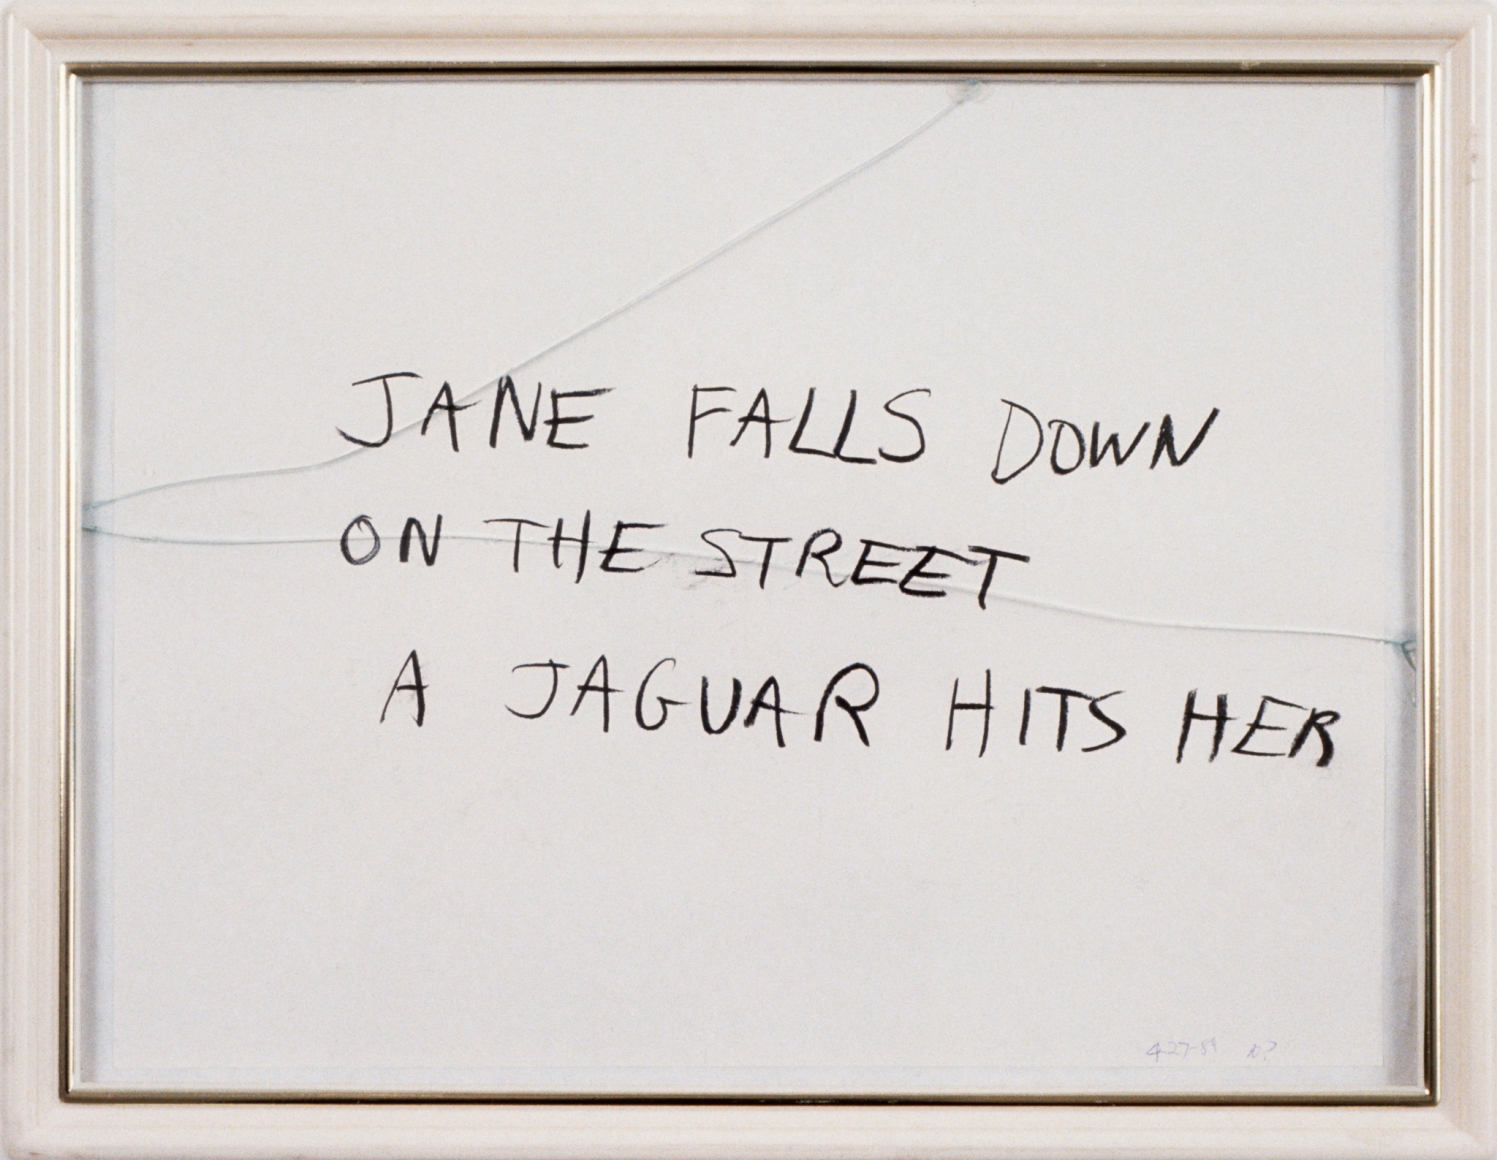 JANE FALLS DOWN
ON THE STREET
A JAGUAR HITS HER
4-27-89